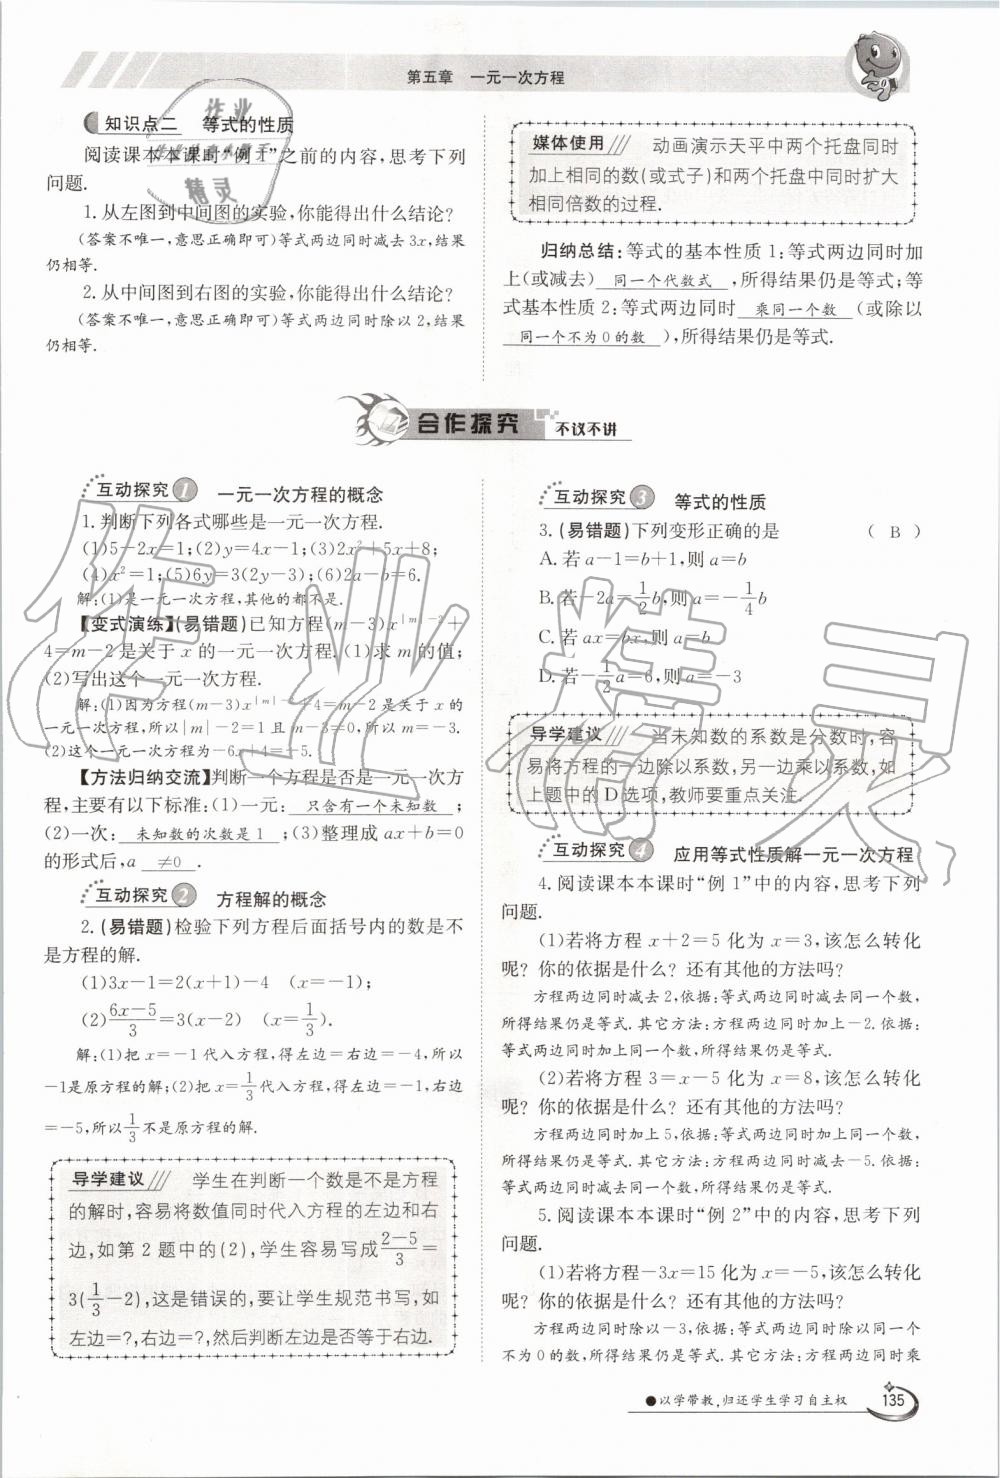 第五章 一元一次方程
知识点二 等式的性质
阅读课本本课时“例1”之前的内容,思考下列
问题.
1.从左图到中间图的实验,你能得出什么结论?
(答案不唯一,意思正确即可)等式两边同时减去3x,结果
仍相等.
2.从中间图到右图的实验,你能得出什么结论?
(答案不唯一,意思正确即可)等式两边同时除以2,结果
仍相等.
媒体使用 动画演示天平中两个托盘同时
加上相同的数(或式子)和两个托盘中同时扩大
相同倍数的过程.
归纳总结:等式的基本性质1:等式两边同时加
上(或减去) 同一个代数式 ,所得结果仍是等式;等
式基本性质2:等式两边同时 乘同一个数 (或除以
同一个不为0的数 ),所得结果仍是等式.
合作探究 不议不讲
互动探究1 一元一次方程的概念
1.判断下列各式哪些是一元一次方程.
(1)5-2x=1;(2)y=4x-1;(3)2x²+5x+8;
(4)x²=1;(5)6y=3(2y-3);(6)2a-b=6.
解:(1)是一元一次方程,其他的都不是.
【变式演练】(易错题)已知方程(m-3)x^{|m|-2}+
4=m-2是关于x的一元一次方程.(1)求m的值;
(2)写出这个一元一次方程.
解:(1)因为方程(m-3)x^{|m|-2}+4=m-2是关于x的
一元一次方程,所以|m|-2=1且m-3≠0,所以m=-3.
(2)这个一元一次方程为-6x+4=-5.
【方法归纳交流】判断一个方程是否是一元一次方
程,主要有以下标准:(1)一元: 只含有一个未知数 ;
(2)一次: 未知数的次数是1 ;(3)整理成ax+b=0
的形式后,a ≠0 .
互动探究2 方程解的概念
2.(易错题)检验下列方程后面括号内的数是不
是方程的解.
(1)3x-1=2(x+1)-4 (x=-1);
(2)\frac{6x-5}{3}=3(x-2) (x=\frac{1}{3}).
解:(1)把x=-1代入方程,得左边=右边=-4,所以
-1是原方程的解;(2)把x=\frac{1}{3}代入方程,得左边=-1,右边
=-5,所以\frac{1}{3}不是原方程的解.
导学建议 学生在判断一个数是不是方程
的解时,容易将数值同时代入方程的左边和右
边,如第2题中的(2),学生容易写成\frac{2-5}{3}=
3(\frac{1}{3}-2),这是错误的,要让学生规范书写,如
左边=?,右边=?,然后判断左边是否等于右边.
互动探究3 等式的性质
3.(易错题)下列变形正确的是 ( B )
A.若a-1=b+1,则a=b
B.若-2a=\frac{1}{2}b,则a=-\frac{1}{4}b
C.若ax=bx,则a=b
D.若-\frac{1}{2}a=6,则a=-3
导学建议 当未知数的系数是分数时,容
易将方程的一边除以系数,另一边乘以系数,如
上题中的D选项,教师要重点关注.
互动探究4 应用等式性质解一元一次方程
4.阅读课本本课时“例1”中的内容,思考下列
问题.
(1)若将方程x+2=5化为x=3,该怎么转化
呢?你的依据是什么?还有其他的方法吗?
方程两边同时减去2,依据:等式两边同时减去同一个数,
所得结果仍是等式.其它方法:方程两边同时加上-2.依据:
等式两边同时加上同一个数,所得结果仍是等式.
(2)若将方程3=x-5化为x=8,该怎么转化
呢?你的依据是什么?还有其他的方法吗?
方程两边同时加上5,依据:等式两边同时加上同一个数,
所得结果仍是等式.其它方法:方程两边同时减去-5.依据:
等式两边同时减去同一个数,所得结果仍是等式.
5.阅读课本本课时“例2”中的内容,思考下列
问题.
(1)若将方程-3x=15化为x=-5,该怎么转化
呢?你的依据是什么?还有其他的方法吗?
方程两边同时除以-3,依据:等式两边同时除以同一个
不为0的数,所得结果仍是等式.其它方法:方程两边同时乘
●以学带教,归还学生学习自主权 135
作业精灵
作业
精灵